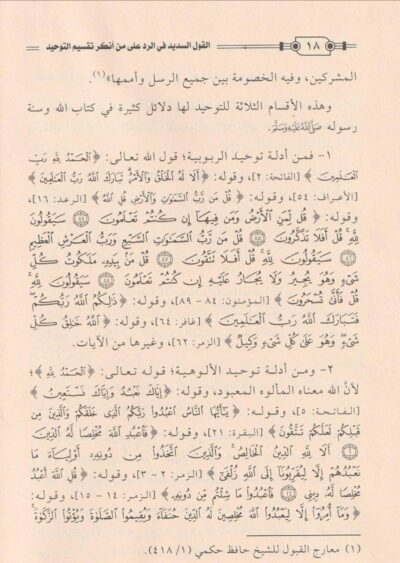 ١٨ القول السديد في الرد على من أنكر تقسيم التوحيد
المشركين، وفيه الخصومة بين جميع الرسل وأممها»(١).
وهذه الأقسام الثلاثة للتوحيد لها دلائل كثيرة في كتاب الله وسنة
رسوله ﷺ.
١- فمن أدلة توحيد الربوبية؛ قول الله تعالى: ﴿الْحَمْدُ لِلَّهِ رَبِّ
الْعَالَمِينَ﴾ [الفاتحة: ٢]، وقوله: ﴿أَلَا لَهُ الْخَلْقُ وَالْأَمْرُ تَبَارَكَ اللَّهُ رَبُّ الْعَالَمِينَ﴾
[الأعراف: ٥٤]، وقوله: ﴿قُلْ مَن رَّبُّ السَّمَاوَاتِ وَالْأَرْضِ قُلِ اللَّهُ﴾ [الرعد: ١٦]،
وقوله: ﴿قُل لِّمَنِ الْأَرْضُ وَمَن فِيهَا إِن كُنتُمْ تَعْلَمُونَ ۝٨٤ سَيَقُولُونَ
لِلَّهِ قُلْ أَفَلَا تَذَكَّرُونَ ۝٨٥ قُلْ مَن رَّبُّ السَّمَاوَاتِ السَّبْعِ وَرَبُّ الْعَرْشِ الْعَظِيمِ
۝٨٦ سَيَقُولُونَ لِلَّهِ قُلْ أَفَلَا تَتَّقُونَ ۝٨٧ قُلْ مَن بِيَدِهِ مَلَكُوتُ كُلِّ
شَيْءٍ وَهُوَ يُجِيرُ وَلَا يُجَارُ عَلَيْهِ إِن كُنتُمْ تَعْلَمُونَ ۝٨٨ سَيَقُولُونَ لِلَّهِ
قُلْ فَأَنَّى تُسْحَرُونَ﴾ [المؤمنون: ٨٤ - ٨٩]، وقوله: ﴿ذَٰلِكُمُ اللَّهُ رَبُّكُمْ
فَتَبَارَكَ اللَّهُ رَبُّ الْعَالَمِينَ﴾ [غافر: ٦٤]، وقوله: ﴿اللَّهُ خَالِقُ كُلِّ
شَيْءٍ وَهُوَ عَلَىٰ كُلِّ شَيْءٍ وَكِيلٌ﴾ [الزمر: ٦٢]، وغيرها من الآيات.
٢- ومن أدلة توحيد الألوهية؛ قوله تعالى: ﴿الْحَمْدُ لِلَّهِ﴾؛
لأن الله معناه المألوه المعبود، وقوله: ﴿إِيَّاكَ نَعْبُدُ وَإِيَّاكَ نَسْتَعِينُ﴾
[الفاتحة: ٥]، وقوله: ﴿يَا أَيُّهَا النَّاسُ اعْبُدُوا رَبَّكُمُ الَّذِي خَلَقَكُمْ وَالَّذِينَ مِن
قَبْلِكُمْ لَعَلَّكُمْ تَتَّقُونَ﴾ [البقرة: ٢١]، وقوله: ﴿فَاعْبُدِ اللَّهَ مُخْلِصًا لَّهُ الدِّينَ
۝٢ أَلَا لِلَّهِ الدِّينُ الْخَالِصُ وَالَّذِينَ اتَّخَذُوا مِن دُونِهِ أَوْلِيَاءَ مَا
نَعْبُدُهُمْ إِلَّا لِيُقَرِّبُونَا إِلَى اللَّهِ زُلْفَىٰ﴾ [الزمر: ٢ - ٣]، وقوله: ﴿قُلِ اللَّهَ أَعْبُدُ
مُخْلِصًا لَّهُ دِينِي ۝١٤ فَاعْبُدُوا مَا شِئْتُم مِّن دُونِهِ﴾ [الزمر: ١٤ - ١٥]، وقوله:
﴿وَمَا أُمِرُوا إِلَّا لِيَعْبُدُوا اللَّهَ مُخْلِصِينَ لَهُ الدِّينَ حُنَفَاءَ وَيُقِيمُوا الصَّلَاةَ وَيُؤْتُوا الزَّكَاةَ
(١) معارج القبول للشيخ حافظ حكمي (١/ ٤١٨).